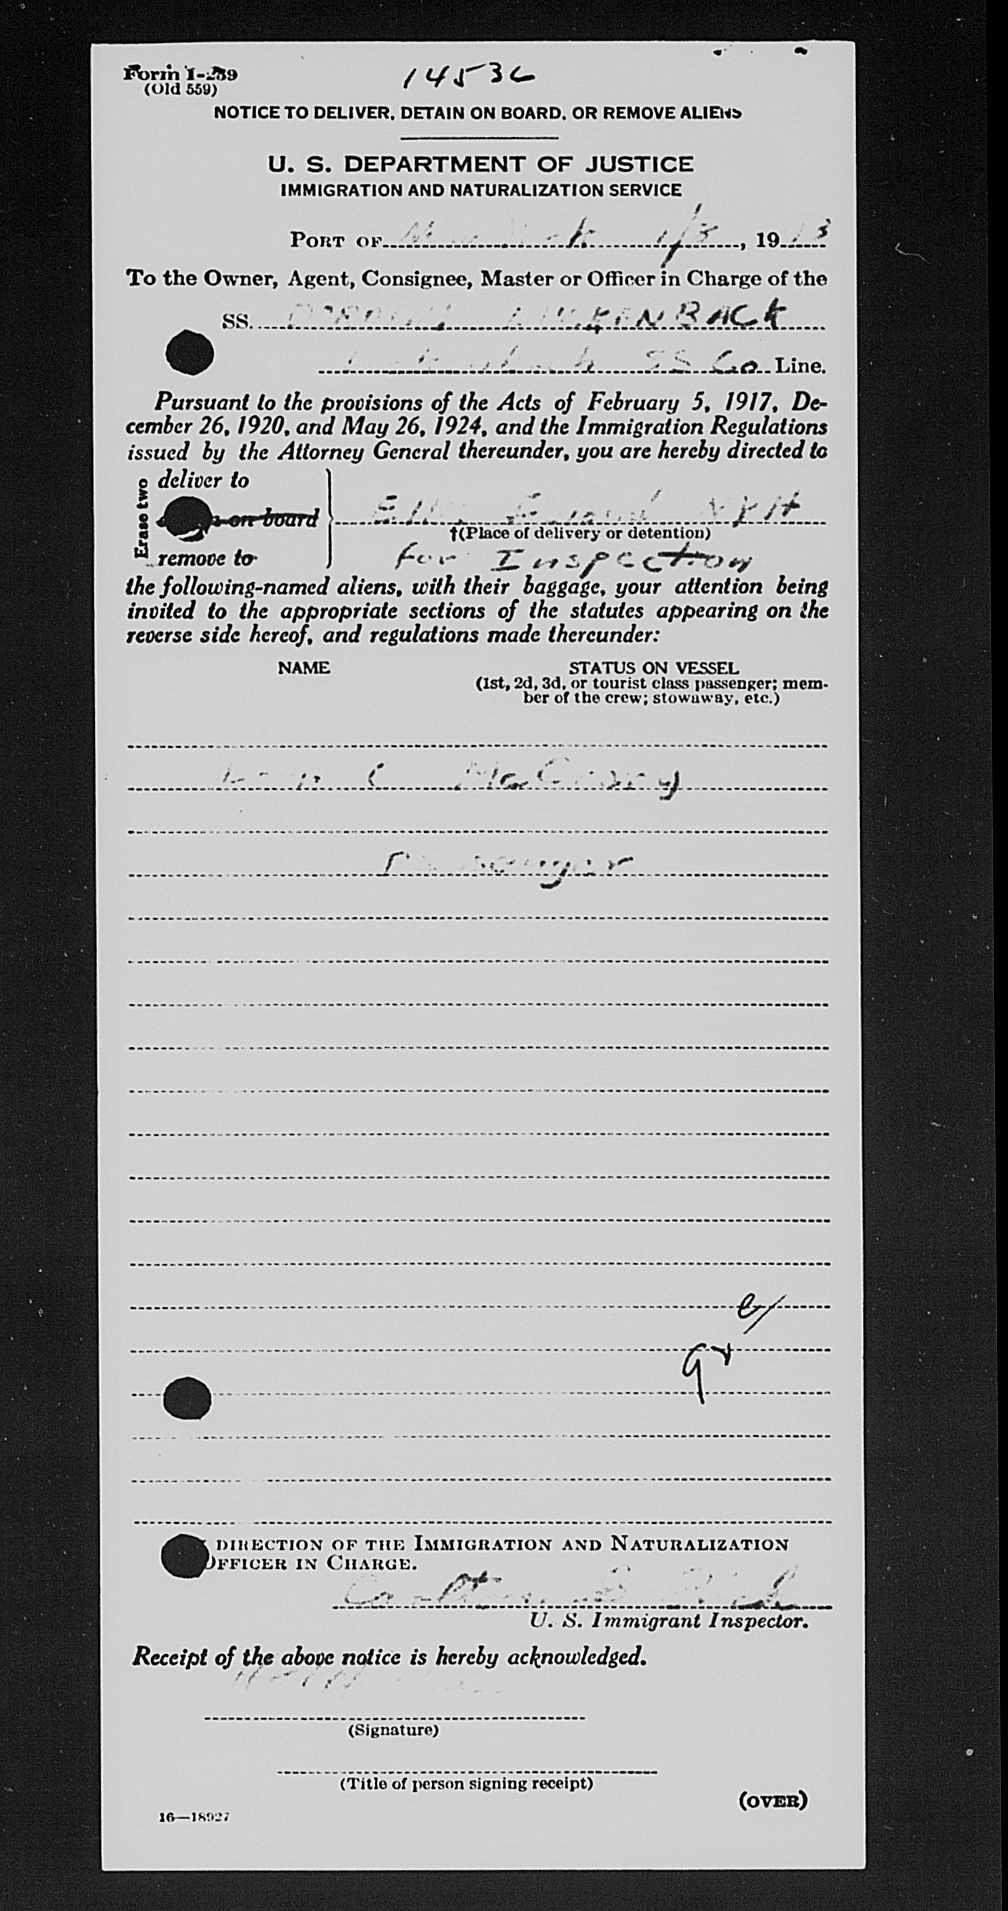 Form I-259
(Old 559)
14536
NOTICE TO DELIVER, DETAIN ON BOARD, OR REMOVE ALIENS
U. S. DEPARTMENT OF JUSTICE
IMMIGRATION AND NATURALIZATION SERVICE
PORT OF New York 1/3, 19
To the Owner, Agent, Consignee, Master or Officer in Charge of the
SS. LUCKENBACK
SS Co Line.
Pursuant to the provisions of the Acts of February 5, 1917, De-
cember 26, 1920, and May 26, 1924, and the Immigration Regulations
issued by the Attorney General thereunder, you are hereby directed to
Erase two
deliver to
on board
remove to
Ellis Island NYH
†(Place of delivery or detention)
for Inspection
the following-named aliens, with their baggage, your attention being
invited to the appropriate sections of the statutes appearing on the
reverse side hereof, and regulations made thereunder:
NAME
STATUS ON VESSEL
(1st, 2d, 3d, or tourist class passenger; mem-
ber of the crew; stowaway, etc.)
C
Passenger
DIRECTION OF THE IMMIGRATION AND NATURALIZATION
OFFICER IN CHARGE.
U. S. Immigrant Inspector.
Receipt of the above notice is hereby acknowledged.
(Signature)
(Title of person signing receipt)
(OVER)
16—18927